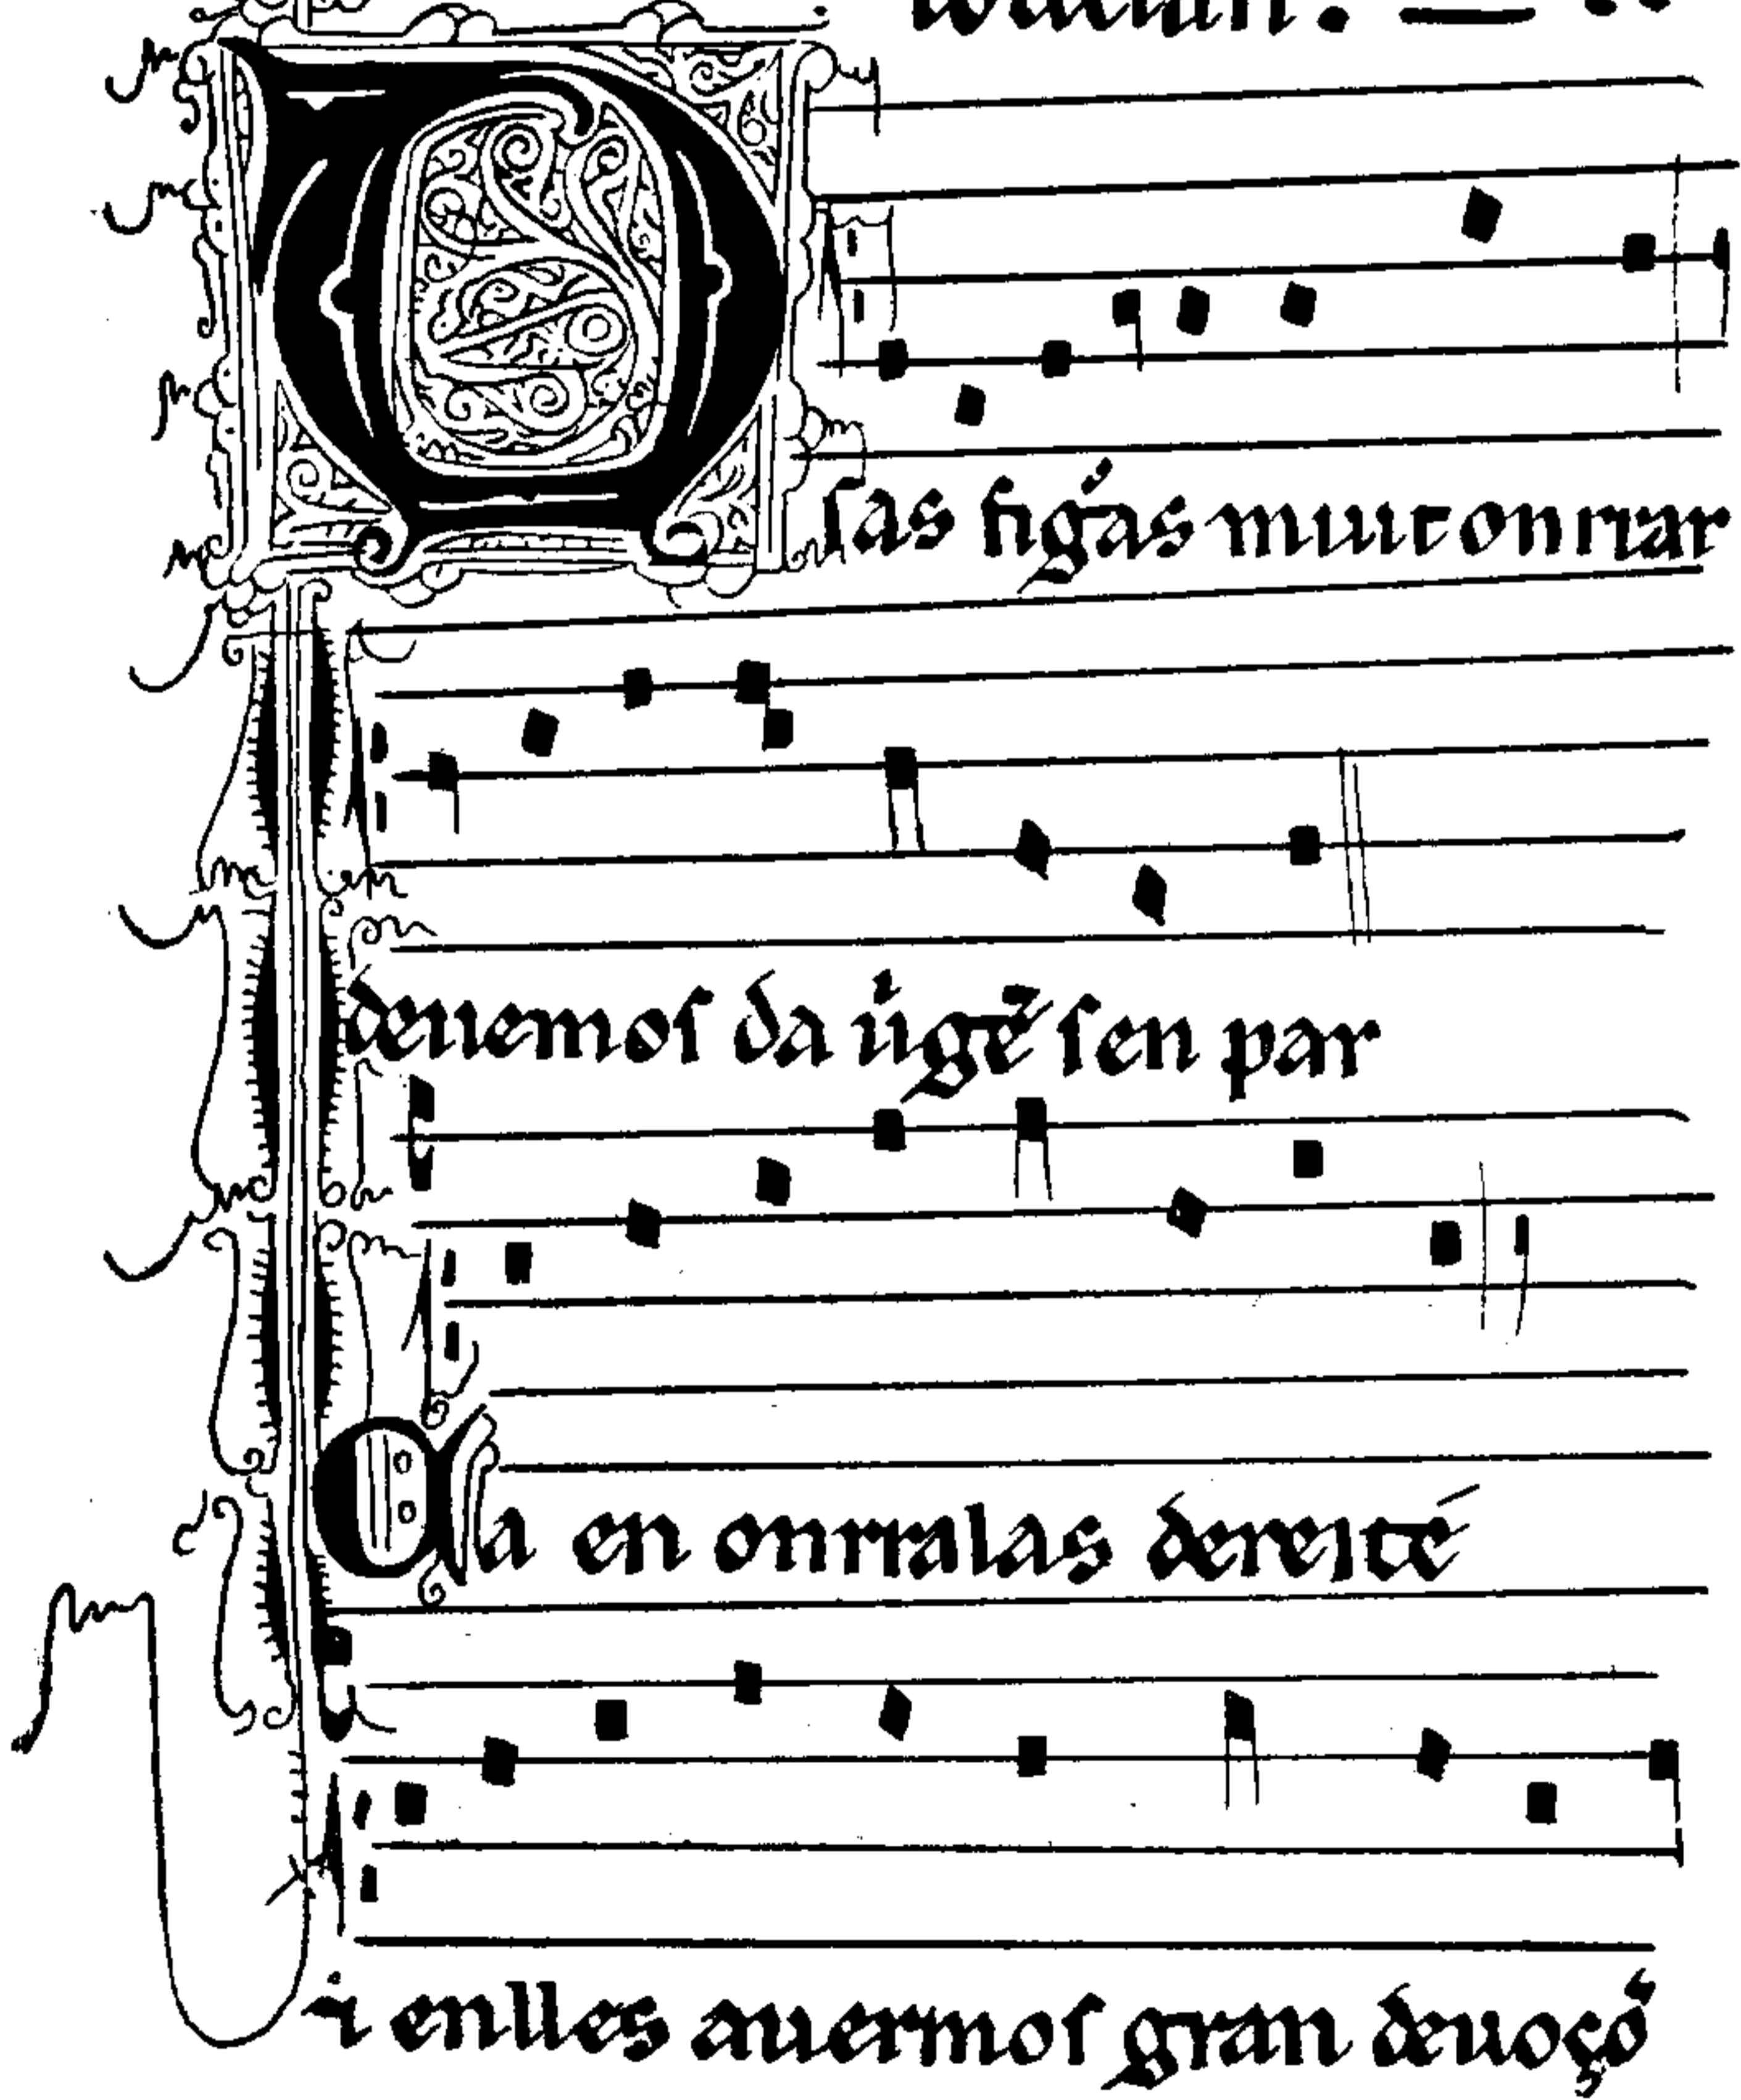 ſas fiǵas muit onrrar
deuemoſ da uⁱgẽ ſen par
Ca en onrralas dereit é
enlles auermoſ gran deuoçõ